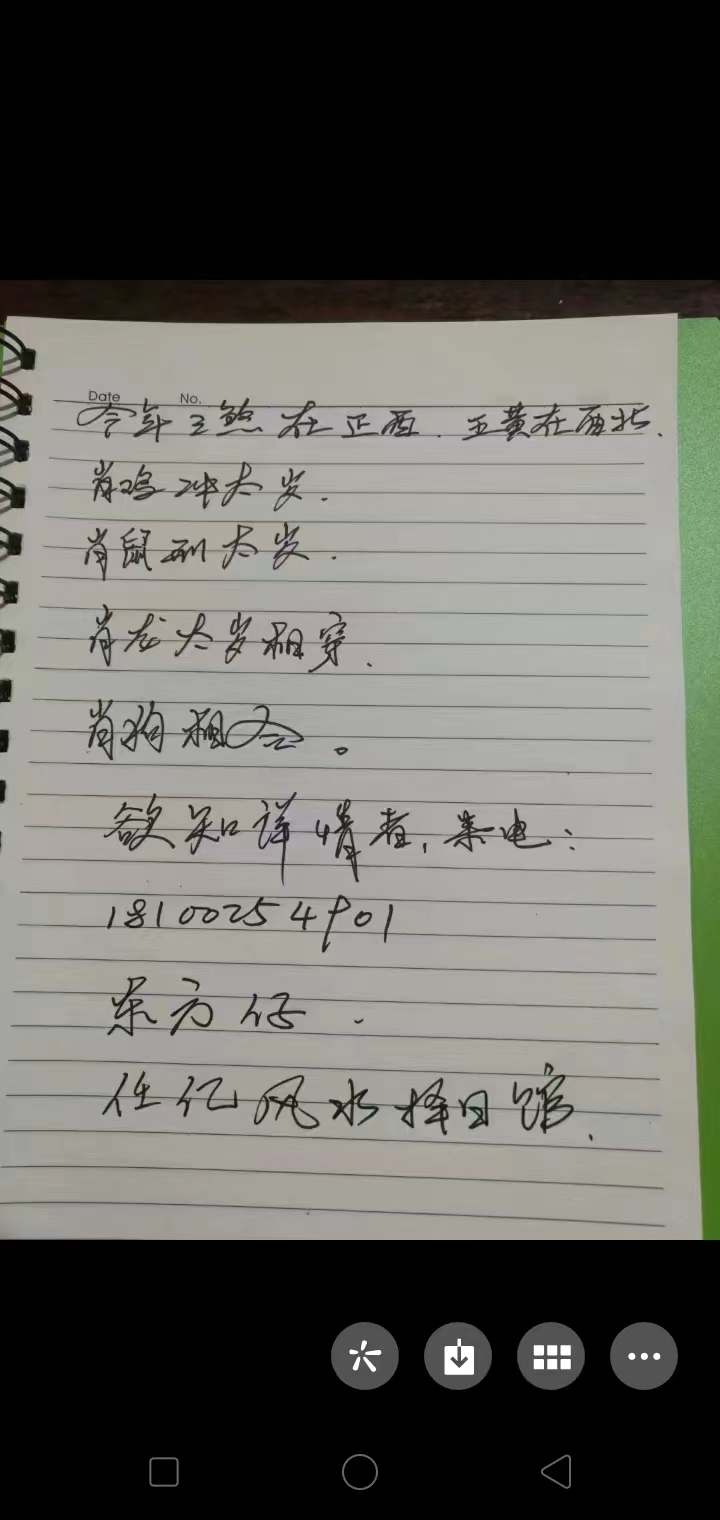 Date No.
今年三煞在正西.五黄在西北.
肖鸡冲太岁.
肖鼠刑太岁.
肖龙太岁相穿.
肖狗相合。
欲知详情者,来电:
18100254901
东方仔.
任亿风水择日馆.